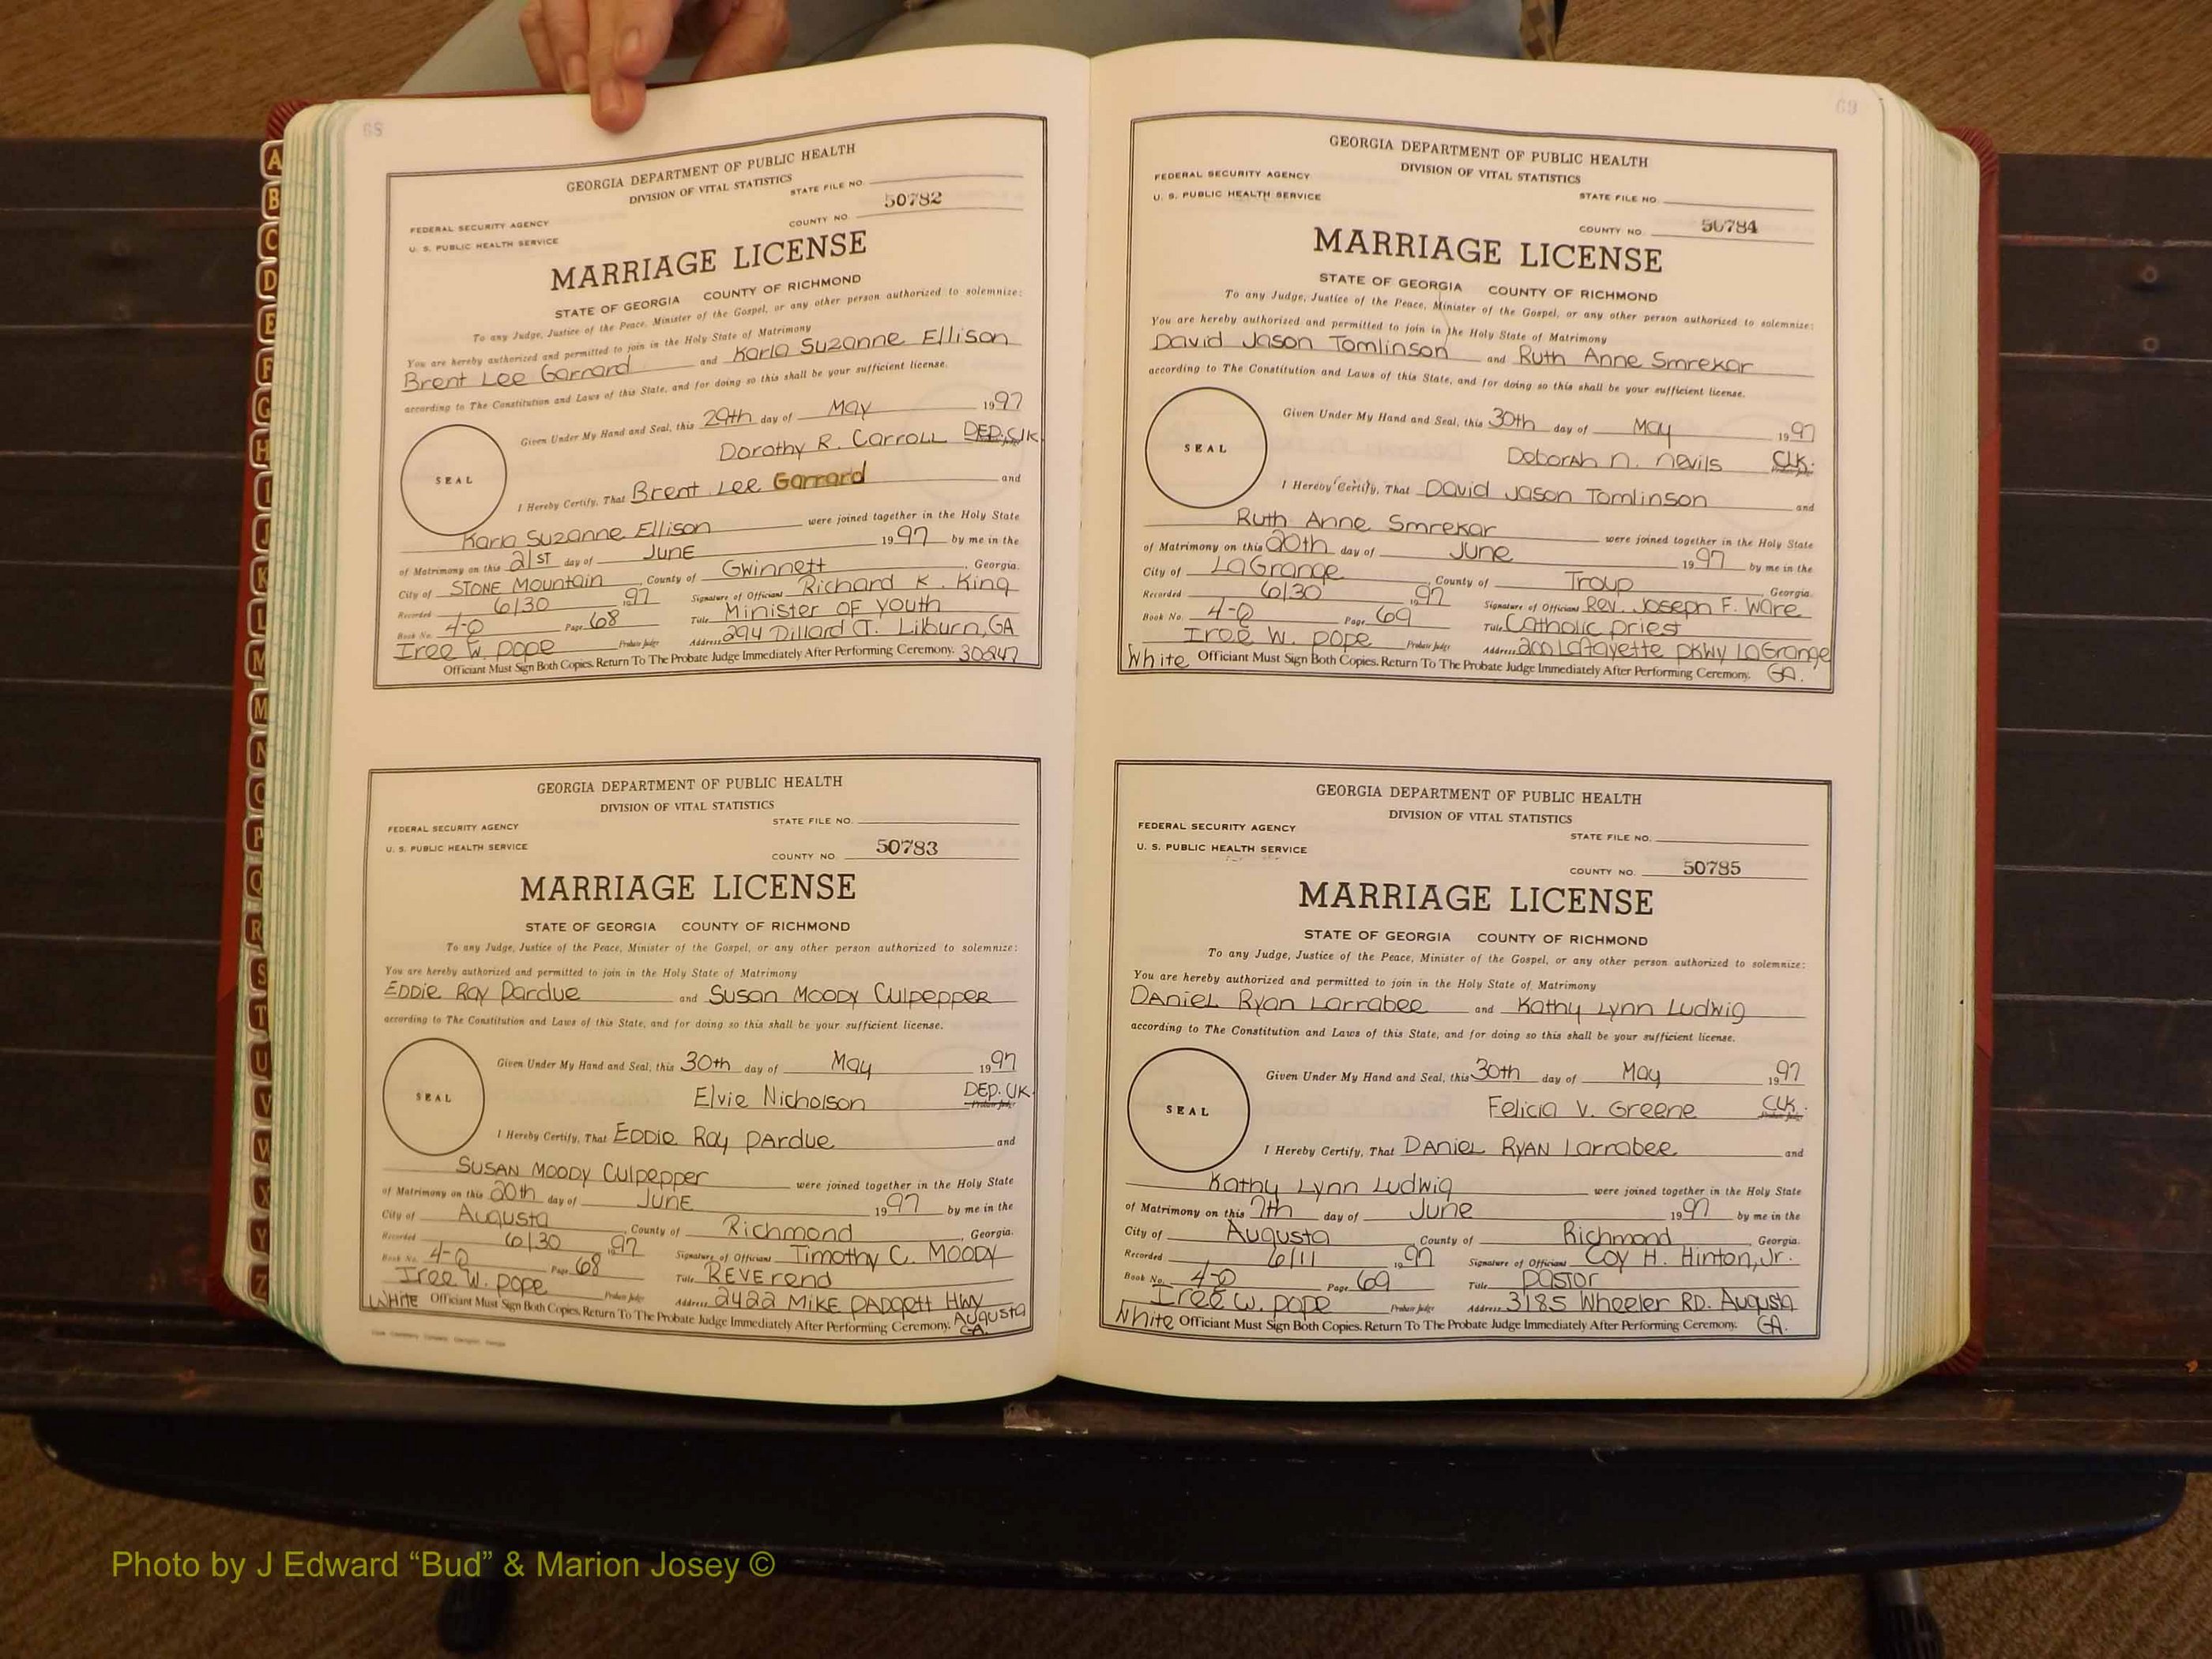 68
GEORGIA DEPARTMENT OF PUBLIC HEALTH
DIVISION OF VITAL STATISTICS
STATE FILE NO.
FEDERAL SECURITY AGENCY
U. S. PUBLIC HEALTH SERVICE
COUNTY NO. 50782
MARRIAGE LICENSE
STATE OF GEORGIA COUNTY OF RICHMOND
To any Judge, Justice of the Peace, Minister of the Gospel, or any other person authorized to solemnize:
You are hereby authorized and permitted to join in the Holy State of Matrimony
Brent Lee Garrard and Karla Suzanne Ellison
according to The Constitution and Laws of this State, and for doing so this shall be your sufficient license.
Given Under My Hand and Seal, this 29th day of May 1997
Dorothy R. Carroll DEP. Clk
SEAL
I Hereby Certify, That Brent Lee Garrard and
Karla Suzanne Ellison were joined together in the Holy State
of Matrimony on this 21ST day of JUNE 1997 by me in the
City of STONE Mountain, County of Gwinnett, Georgia.
Recorded 6/30 1997 Signature of Officiant Richard K. King
Book No. 4-Q Page 68 Title Minister OF Youth
Iree W. pope Probate Judge Address 294 Dillard CT. Lilburn, GA
Officiant Must Sign Both Copies. Return To The Probate Judge Immediately After Performing Ceremony. 30247
GEORGIA DEPARTMENT OF PUBLIC HEALTH
DIVISION OF VITAL STATISTICS
STATE FILE NO.
FEDERAL SECURITY AGENCY
U. S. PUBLIC HEALTH SERVICE
COUNTY NO. 50783
MARRIAGE LICENSE
STATE OF GEORGIA COUNTY OF RICHMOND
To any Judge, Justice of the Peace, Minister of the Gospel, or any other person authorized to solemnize:
You are hereby authorized and permitted to join in the Holy State of Matrimony
EDDIE Ray Pardue and Susan Moody Culpepper
according to The Constitution and Laws of this State, and for doing so this shall be your sufficient license.
Given Under My Hand and Seal, this 30th day of May 1997
Elvie Nicholson DEP. Clk.
Probate Judge
SEAL
I Hereby Certify, That EDDIE Ray PArdue and
SUSAN MOODY Culpepper were joined together in the Holy State
of Matrimony on this 20th day of JUNE 1997 by me in the
City of Augusta, County of Richmond, Georgia.
Recorded 6/30 1997 Signature of Officiant Timothy C. Moody
Book No. 4-Q Page 68 Title REVErend
Iree W. pope Probate Judge Address 2422 MIKE PADgett HWY
WHITE Officiant Must Sign Both Copies. Return To The Probate Judge Immediately After Performing Ceremony. Augusta
GA.
69
GEORGIA DEPARTMENT OF PUBLIC HEALTH
DIVISION OF VITAL STATISTICS
FEDERAL SECURITY AGENCY
U. S. PUBLIC HEALTH SERVICE
STATE FILE NO.
COUNTY NO. 50784
MARRIAGE LICENSE
STATE OF GEORGIA COUNTY OF RICHMOND
To any Judge, Justice of the Peace, Minister of the Gospel, or any other person authorized to solemnize:
You are hereby authorized and permitted to join in the Holy State of Matrimony
David Jason Tomlinson and Ruth Anne Smrekar
according to The Constitution and Laws of this State, and for doing so this shall be your sufficient license.
Given Under My Hand and Seal, this 30th day of May 1997
Deborah N. Nevils CLK.
Probate Judge
SEAL
I Hereby Certify, That David Jason Tomlinson and
Ruth Anne Smrekar were joined together in the Holy State
of Matrimony on this 20th day of June 1997 by me in the
City of LaGrange, County of Troup, Georgia.
Recorded 6/30 1997 Signature of Officiant Rev. Joseph F. Ware
Book No. 4-Q Page 69 Title Catholic priest
Iree W. pope Probate Judge Address 200 Lafayette PKWY LaGrange
White Officiant Must Sign Both Copies. Return To The Probate Judge Immediately After Performing Ceremony. GA.
GEORGIA DEPARTMENT OF PUBLIC HEALTH
DIVISION OF VITAL STATISTICS
FEDERAL SECURITY AGENCY
U. S. PUBLIC HEALTH SERVICE
STATE FILE NO.
COUNTY NO. 50785
MARRIAGE LICENSE
STATE OF GEORGIA COUNTY OF RICHMOND
To any Judge, Justice of the Peace, Minister of the Gospel, or any other person authorized to solemnize:
You are hereby authorized and permitted to join in the Holy State of Matrimony
DANIEL Ryan Larrabee and Kathy Lynn Ludwig
according to The Constitution and Laws of this State, and for doing so this shall be your sufficient license.
Given Under My Hand and Seal, this 30th day of May 1997
Felicia V. Greene CLK.
Probate Judge
SEAL
I Hereby Certify, That DANIEL RYAN Larrabee and
Kathy Lynn Ludwig were joined together in the Holy State
of Matrimony on this 7th day of June 1997 by me in the
City of Augusta, County of Richmond, Georgia.
Recorded 6/11 1997 Signature of Officiant Coy H. Hinton, Jr.
Book No. 4-Q Page 69 Title pastor
Iree W. pope Probate Judge Address 3185 Wheeler RD. Augusta
White Officiant Must Sign Both Copies. Return To The Probate Judge Immediately After Performing Ceremony. GA.
A
B
C
D
E
F
G
H
I
J
K
L
M
M
N
O
P
Q
R
S
T
U
V
W
X
Y
Z
Photo by J Edward “Bud” & Marion Josey ©